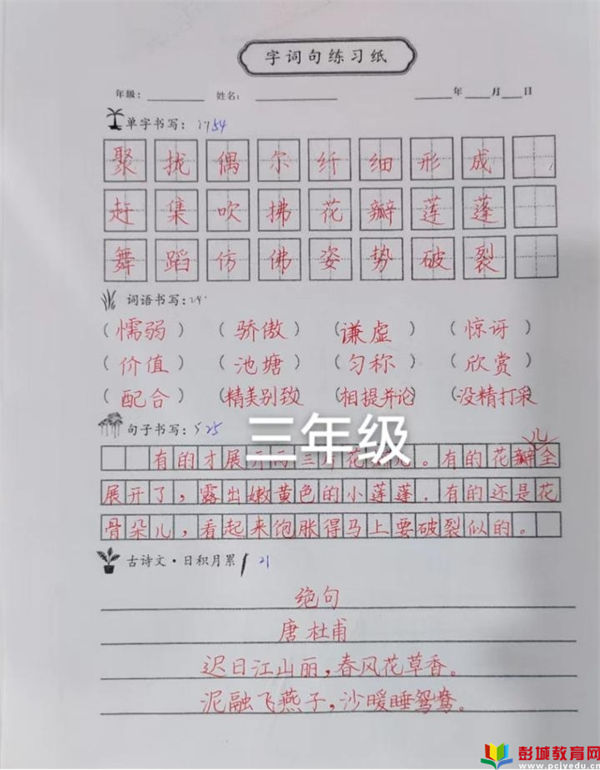 字词句练习纸
年级: 姓名: 年 月 日
单字书写: 1754
聚 拢 偶 尔 纤 细 形 成
赶 集 吹 拂 花 瓣 莲 蓬
舞 蹈 仿 佛 姿 势 破 裂
词语书写:
(懦弱) (骄傲) (谦虚) (惊讶)
(价值) (池塘) (匀称) (欣赏)
(配合) (精美别致) (相提并论) (没精打采)
句子书写: 525
有的才展开两三片花瓣儿。有的花瓣儿全
展开了，露出嫩黄色的小莲蓬，有的还是花
骨朵儿，看起来饱胀得马上要破裂似的。
三年级
古诗文·日积月累 21
绝句
唐 杜甫
迟日江山丽，春风花草香。
泥融飞燕子，沙暖睡鸳鸯。
彭城教育网
www.pcjyedu.cn